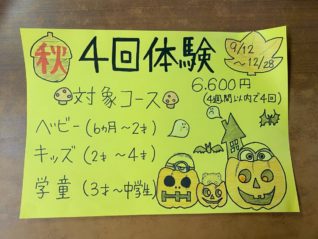 秋 4回体験 9/12〜12/28
6.600円
(4週間以内で4回)
対象コース
ベビー(6ヵ月〜2才)
キッズ(2才〜4才)
学童(3才〜中学生)